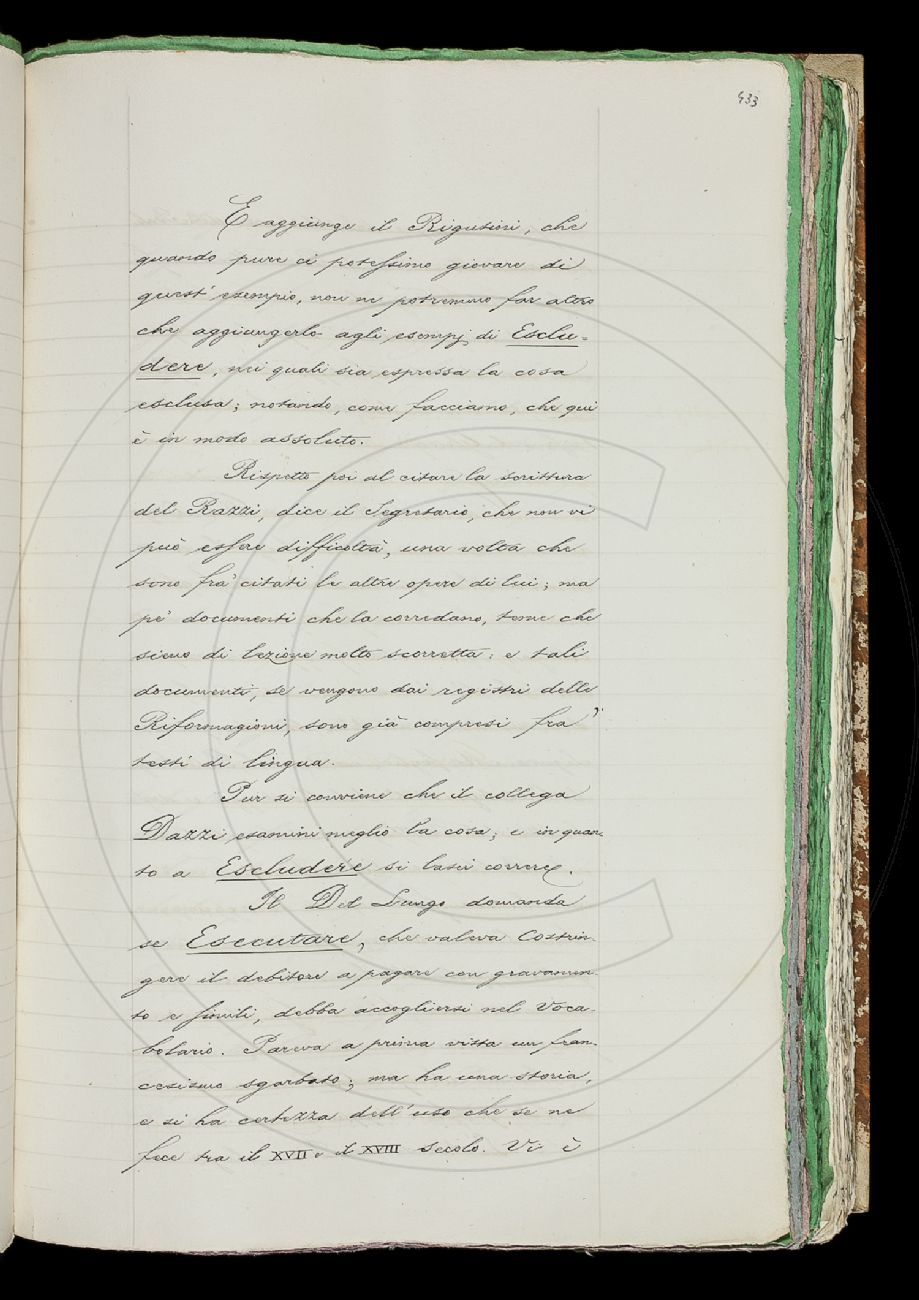 433
E aggiunge il Rigutini, che
quando pure ci potessimo giovare di
quest' esempio, non ne potremmo far altro
che aggiungerlo agli esempj di Esclu=
dere, nei quali sia espressa la cosa
esclusa; notando, come facciamo, che qui
è in modo assoluto.
Rispetto poi al citare la scrittura
del Razzi, dice il Segretario, che non vi
può essere difficoltà, una volta che
sono fra' citati le altre opere di lui; ma
pe' documenti che la corredano, teme che
sieno di lezione molto scorretta: e tali
documenti, se vengono dai registri delle
Riformagioni, sono già compresi fra'
testi di lingua.
Pur si conviene che il collega
Dazzi esamini meglio la cosa; e in quan-
to a Escludere si lasci correre.
Il Del Lungo domanda
se Esecutare, che valeva Costrin-
gere il debitore a pagare con gravamen-
to e simili, debba accogliersi nel Voca-
bolario. Pareva a prima vista un fran-
cesismo sgarbato; ma ha una storia,
e si ha certezza dell'uso che se ne
fece tra il XVII e il XVIII secolo. Vi è